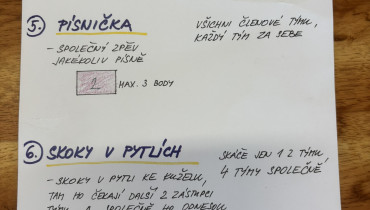 5. PÍSNIČKA
VŠICHNI ČLENOVÉ TÝMU,
KAŽDÝ TÝM ZA SEBE
- SPOLEČNÝ ZPĚV
JAKÉKOLIV PÍSNĚ
2 MAX. 3 BODY
6. SKOKY V PYTLÍCH
SKÁČE JEN 1 Z TÝMU,
4 TÝMY SPOLEČNĚ
- SKOKY V PYTLI KE KUŽELU,
TAM HO ČEKAJÍ DALŠÍ 2 ZÁSTUPCI
TÝMU A SPOLEČNĚ HO DONESOU